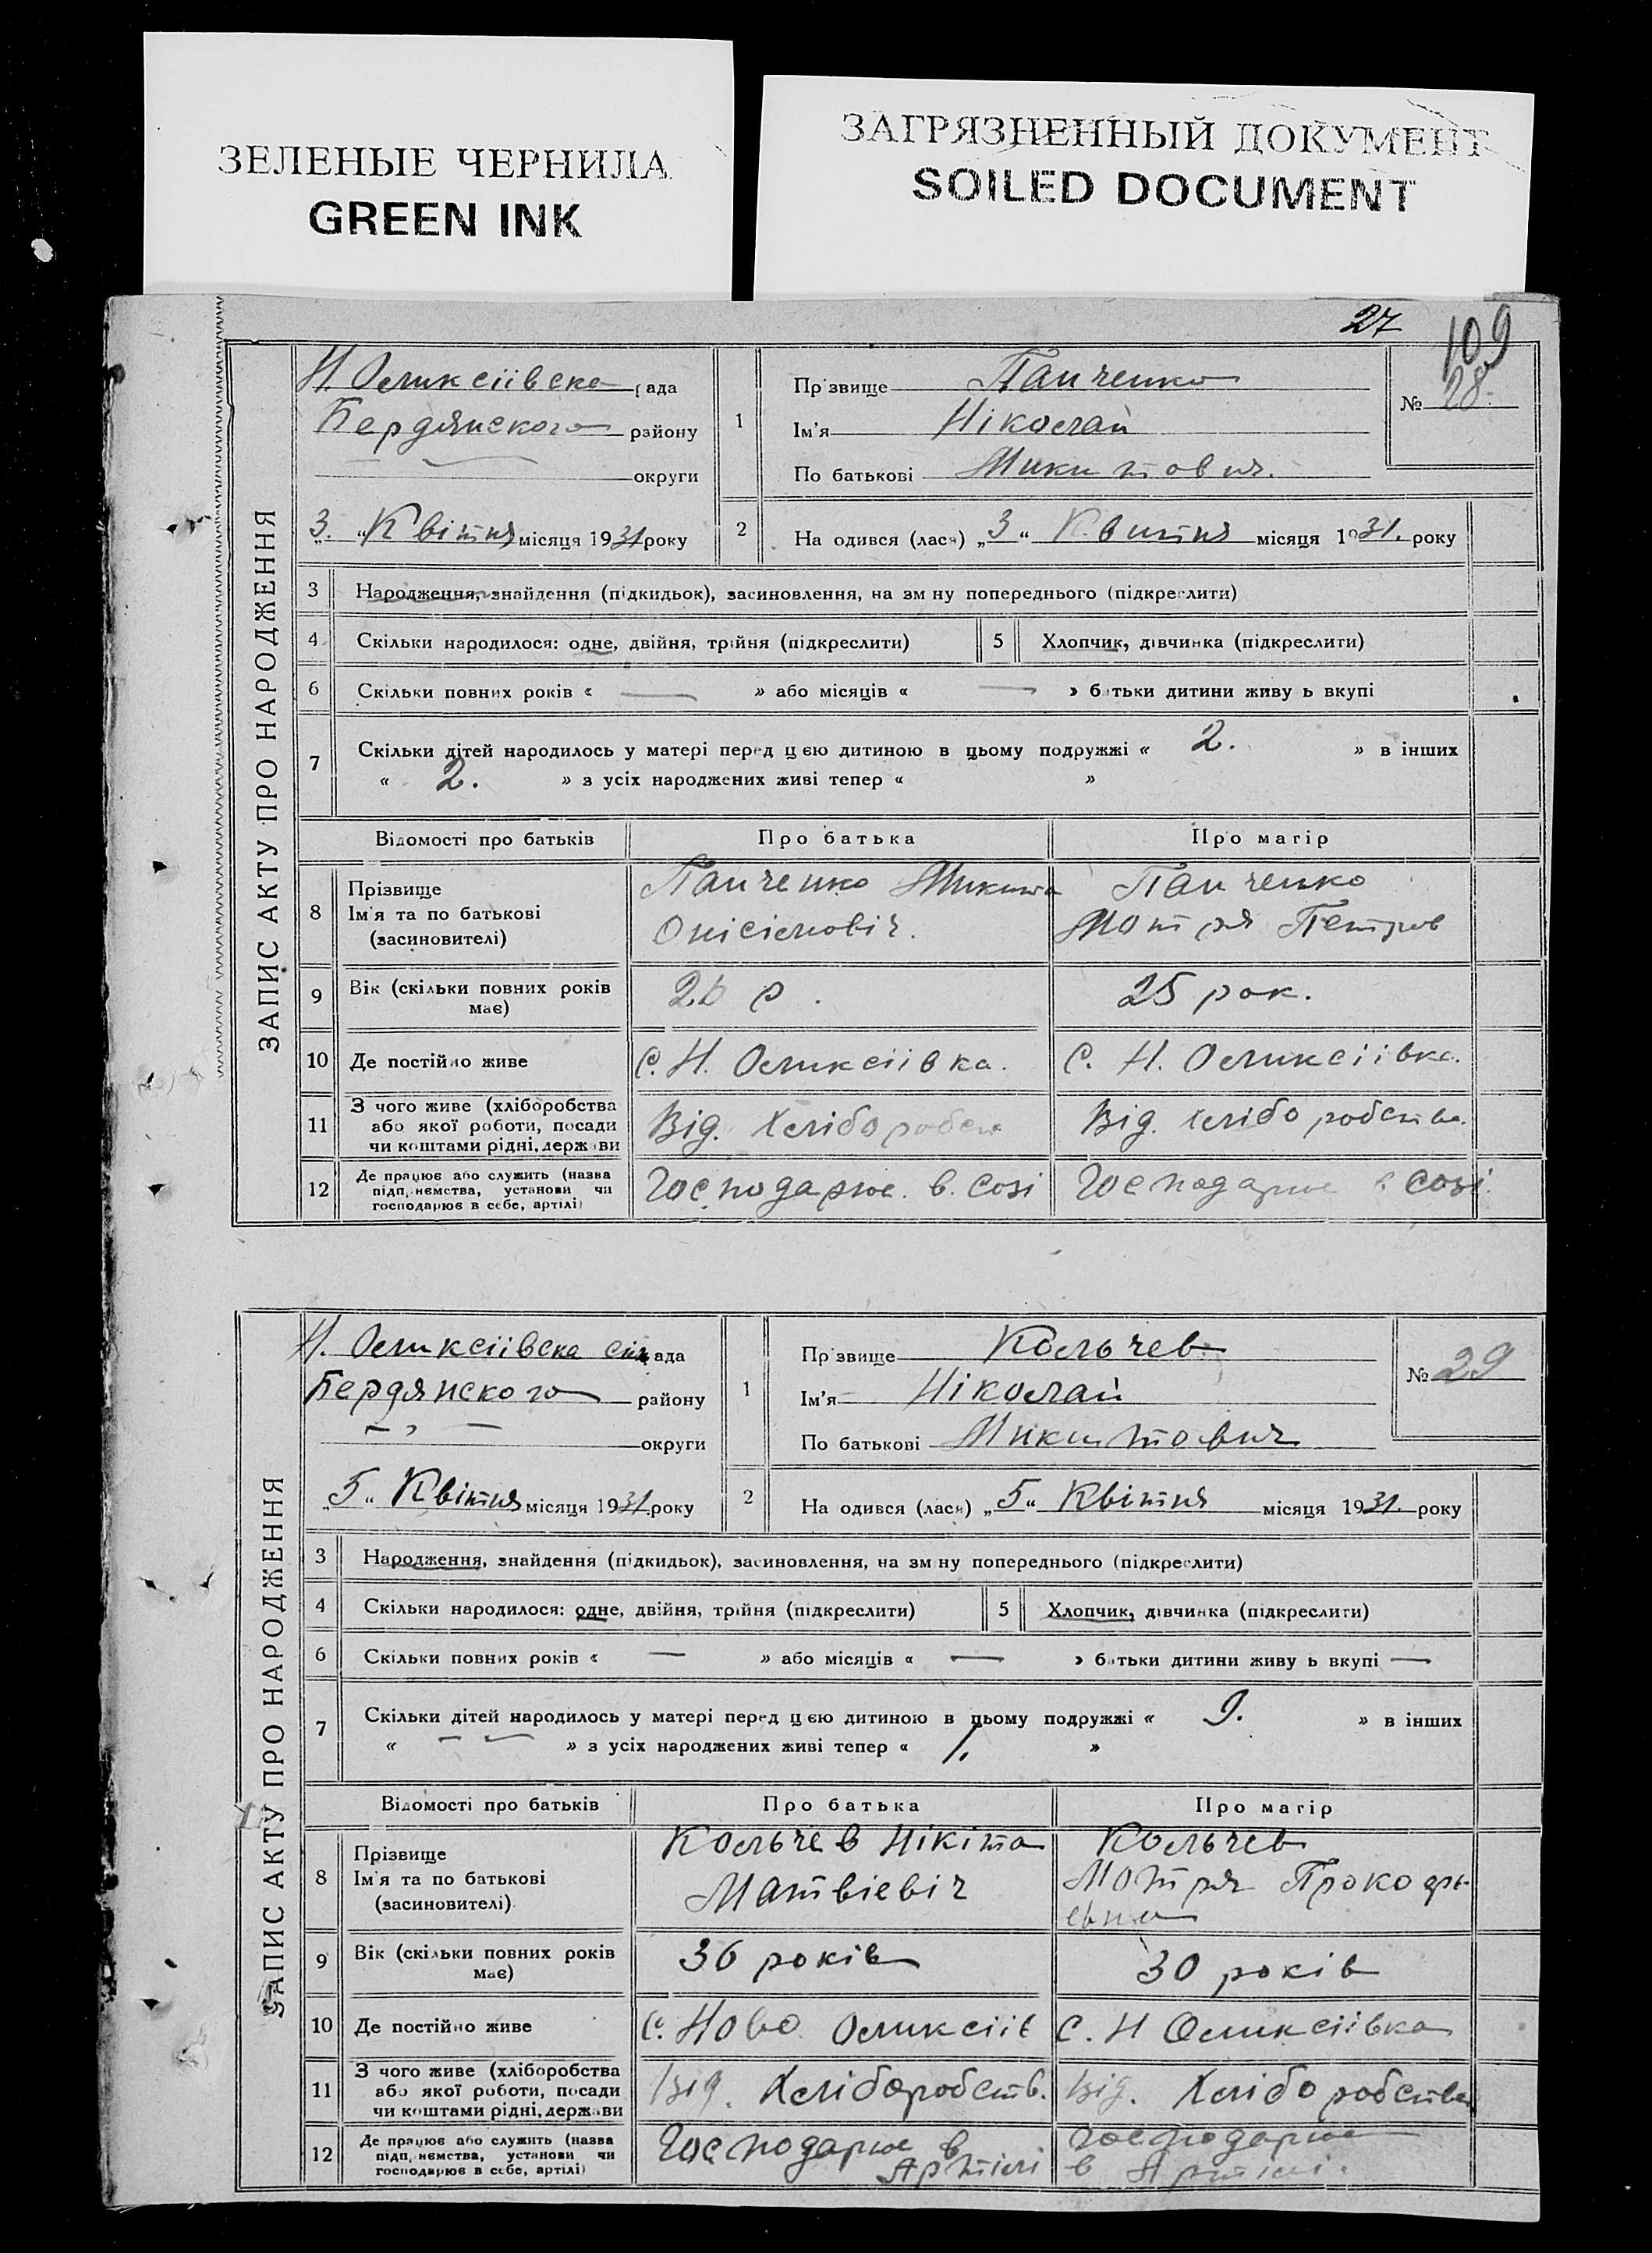 ЗЕЛЕНЫЕ ЧЕРНИЛА
GREEN INK
ЗАГРЯЗНЕННЫЙ ДОКУМЕНТ
SOILED DOCUMENT
27
109
ЗАПИС АКТУ ПРО НАРОДЖЕННЯ
Н. Оликсіівска рада
Бердянского району
округи
3. "Квітня місяця 1931 року
1
Прізвище Панченко
Ім'я Ніколай
По батькові Микитович.
№ 28.
2
На одився (лася) „3" Квитня місяця 1931. року
3 Народження, знайдення (підкидьок), засиновлення, на зм ну попереднього (підкреслити)
4 Скільки народилося: одне, двійня, трійня (підкреслити) 5 Хлопчик, дівчинка (підкреслити)
6 Скільки повних років « — » або місяців « — » батьки дитини живу ь вкупі
7 Скільки дітей народилось у матері перед цєю дитиною в цьому подружжі « 2. » в інших
« 2. » з усіх народжених живі тепер « »
Відомості про батьків Про батька Про матір
8 Прізвище
Ім'я та по батькові
(засиновителі)
Панченко Микита
Онісімовіч.
Панченко
Мотря Петров
9 Вік (скільки повних років
має)
26 р.
25 рок.
10 Де постійно живе
С. Н. Оликсіівка.
С. Н. Оликсіівка.
11 З чого живе (хліборобства
або якої роботи, посади
чи коштами рідні, держави
Від. хліборобст
Від. хліборобства.
12 Де працює або служить (назва
підп, немства, установи чи
господарює в себе, артілі)
Господарює. в. созі
Господарює в созі.
ЗАПИС АКТУ ПРО НАРОДЖЕННЯ
Н. Оликсіівска сил ада
Бердянского району
— , — округи
„5" Квітня місяця 1931. року
1
Прізвище Кольчев
Ім'я Ніколай
По батькові Микитович
№ 29
2
На одився (лася) „5" Квітня місяця 1931. року
3 Народження, знайдення (підкидьок), засиновлення, на зм ну попереднього (підкреслити)
4 Скільки народилося: одне, двійня, трійня (підкреслити) 5 Хлопчик, дівчинка (підкреслити)
6 Скільки повних років « — » або місяців « — » батьки дитини живу ь вкупі —
7 Скільки дітей народилось у матері перед цєю дитиною в цьому подружжі « 9. » в інших
« — » з усіх народжених живі тепер « 1. »
Відомості про батьків Про батька Про матір
8 Прізвище
Ім'я та по батькові
(засиновителі)
Кольчев Нікіта
Матвіевіч
Кольчев
Мотря Прокофь-
евна
9 Вік (скільки повних років
має)
36 років
30 років
10 Де постійно живе
С. Ново Оликсіів
С. Н Оликсіівка
11 З чого живе (хліборобства
або якої роботи, посади
чи коштами рідні, держави
Від. Хліборобств.
Від. Хліборобства
12 Де працює або служить (назва
підп, немства, установи чи
господарює в себе, артілі)
Господарює в
Артілі
Господарює
в Артілі.